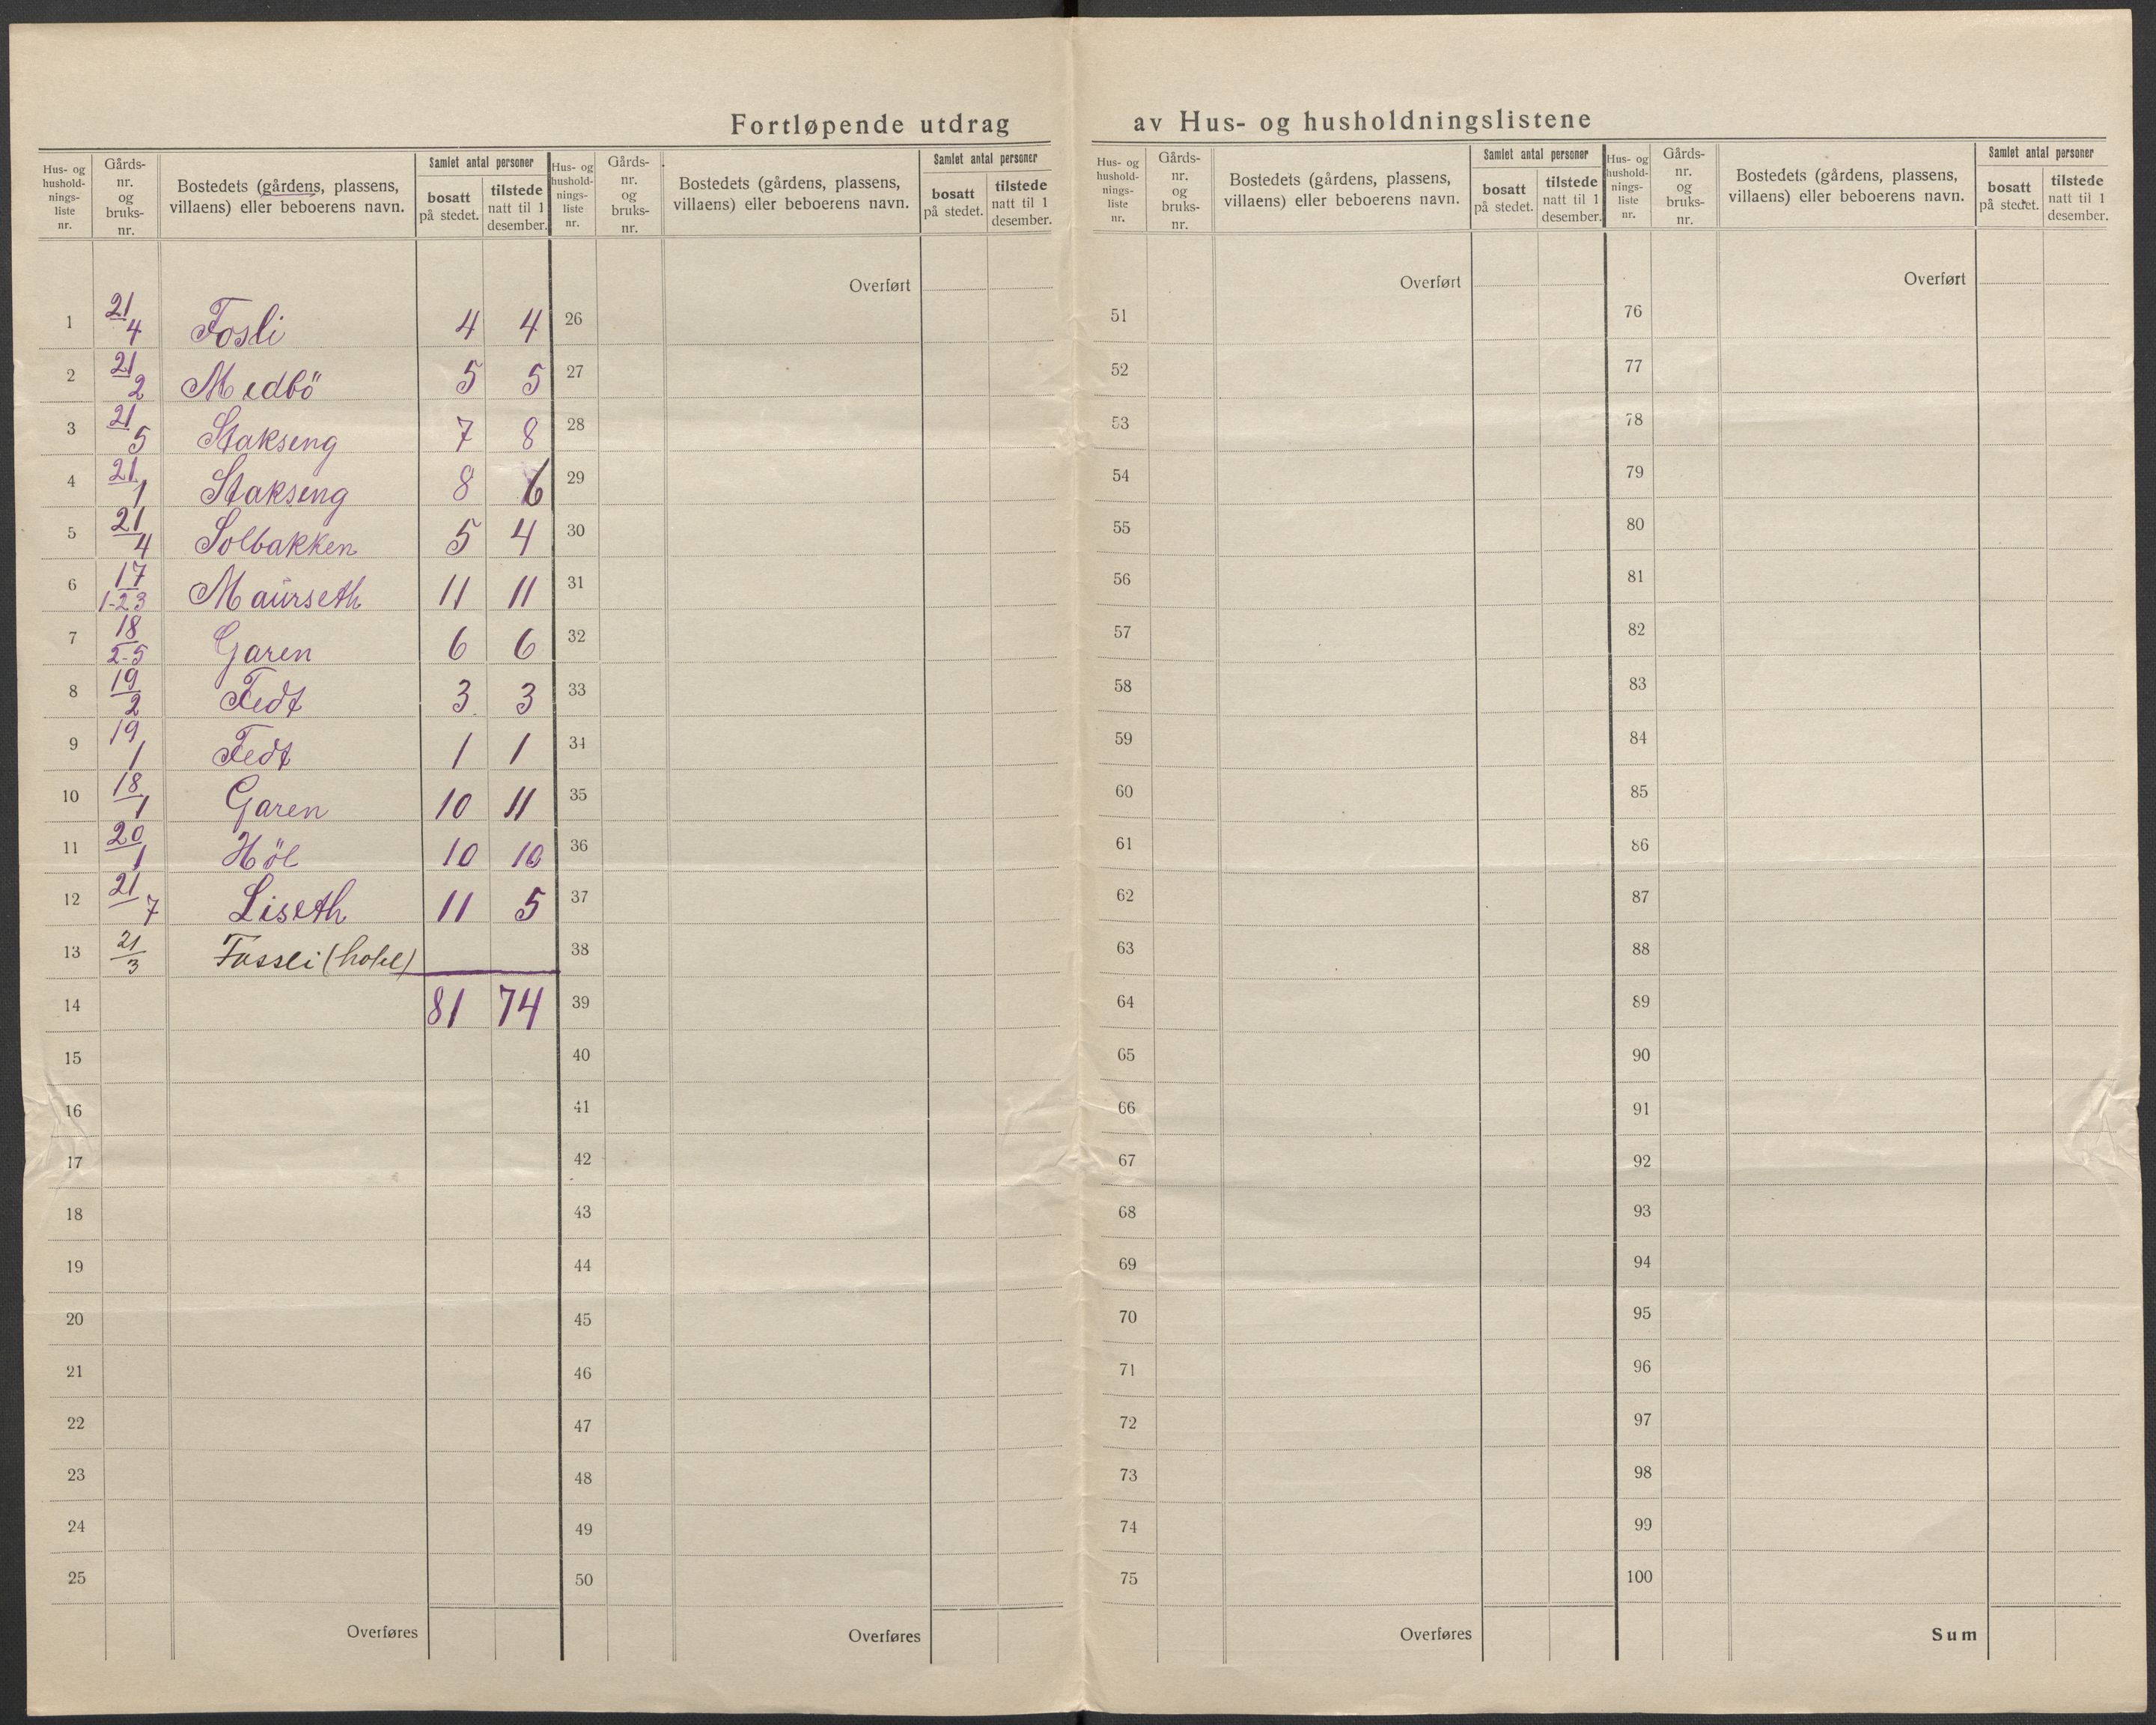 Fortløpende utdrag av Hus- og husholdningslistene
Hus- og hushold- nings- liste nr. | Gårds- nr. og bruks- nr. | Bostedets (gårdens, plassens, villaens) eller beboerens navn. | Samlet antal personer | bosatt på stedet. | tilstede natt til 1 desember.
1 21/4 Fosli 4 4
2 21/2 Medbö 5 5
3 21/5 Stakseng 7 8
4 21/1 Stakseng 8 6
5 21/4 Solbakken 5 4
6 17/1-23 Maurseth 11 11
7 18/2-5 Garen 6 6
8 19/2 Fedt 3 3
9 19/1 Fedt 1 1
10 18/1 Garen 10 11
11 20/1 Höl 10 10
12 21/7 Liseth 11 5
13 21/3 Fossli (hotel)
14 81 74
15
16
17
18
19
20
21
22
23
24
25
Overføres
Hus- og hushold- nings- liste nr. | Gårds- nr. og bruks- nr. | Bostedets (gårdens, plassens, villaens) eller beboerens navn. | Samlet antal personer | bosatt på stedet. | tilstede natt til 1 desember.
Overført
26
27
28
29
30
31
32
33
34
35
36
37
38
39
40
41
42
43
44
45
46
47
48
49
50
Overføres
Hus- og hushold- nings- liste nr. | Gårds- nr. og bruks- nr. | Bostedets (gårdens, plassens, villaens) eller beboerens navn. | Samlet antal personer | bosatt på stedet. | tilstede natt til 1 desember.
Overført
51
52
53
54
55
56
57
58
59
60
61
62
63
64
65
66
67
68
69
70
71
72
73
74
75
Overføres
Hus- og hushold- nings- liste nr. | Gårds- nr. og bruks- nr. | Bostedets (gårdens, plassens, villaens) eller beboerens navn. | Samlet antal personer | bosatt på stedet. | tilstede natt til 1 desember.
Overført
76
77
78
79
80
81
82
83
84
85
86
87
88
89
90
91
92
93
94
95
96
97
98
99
100
Sum